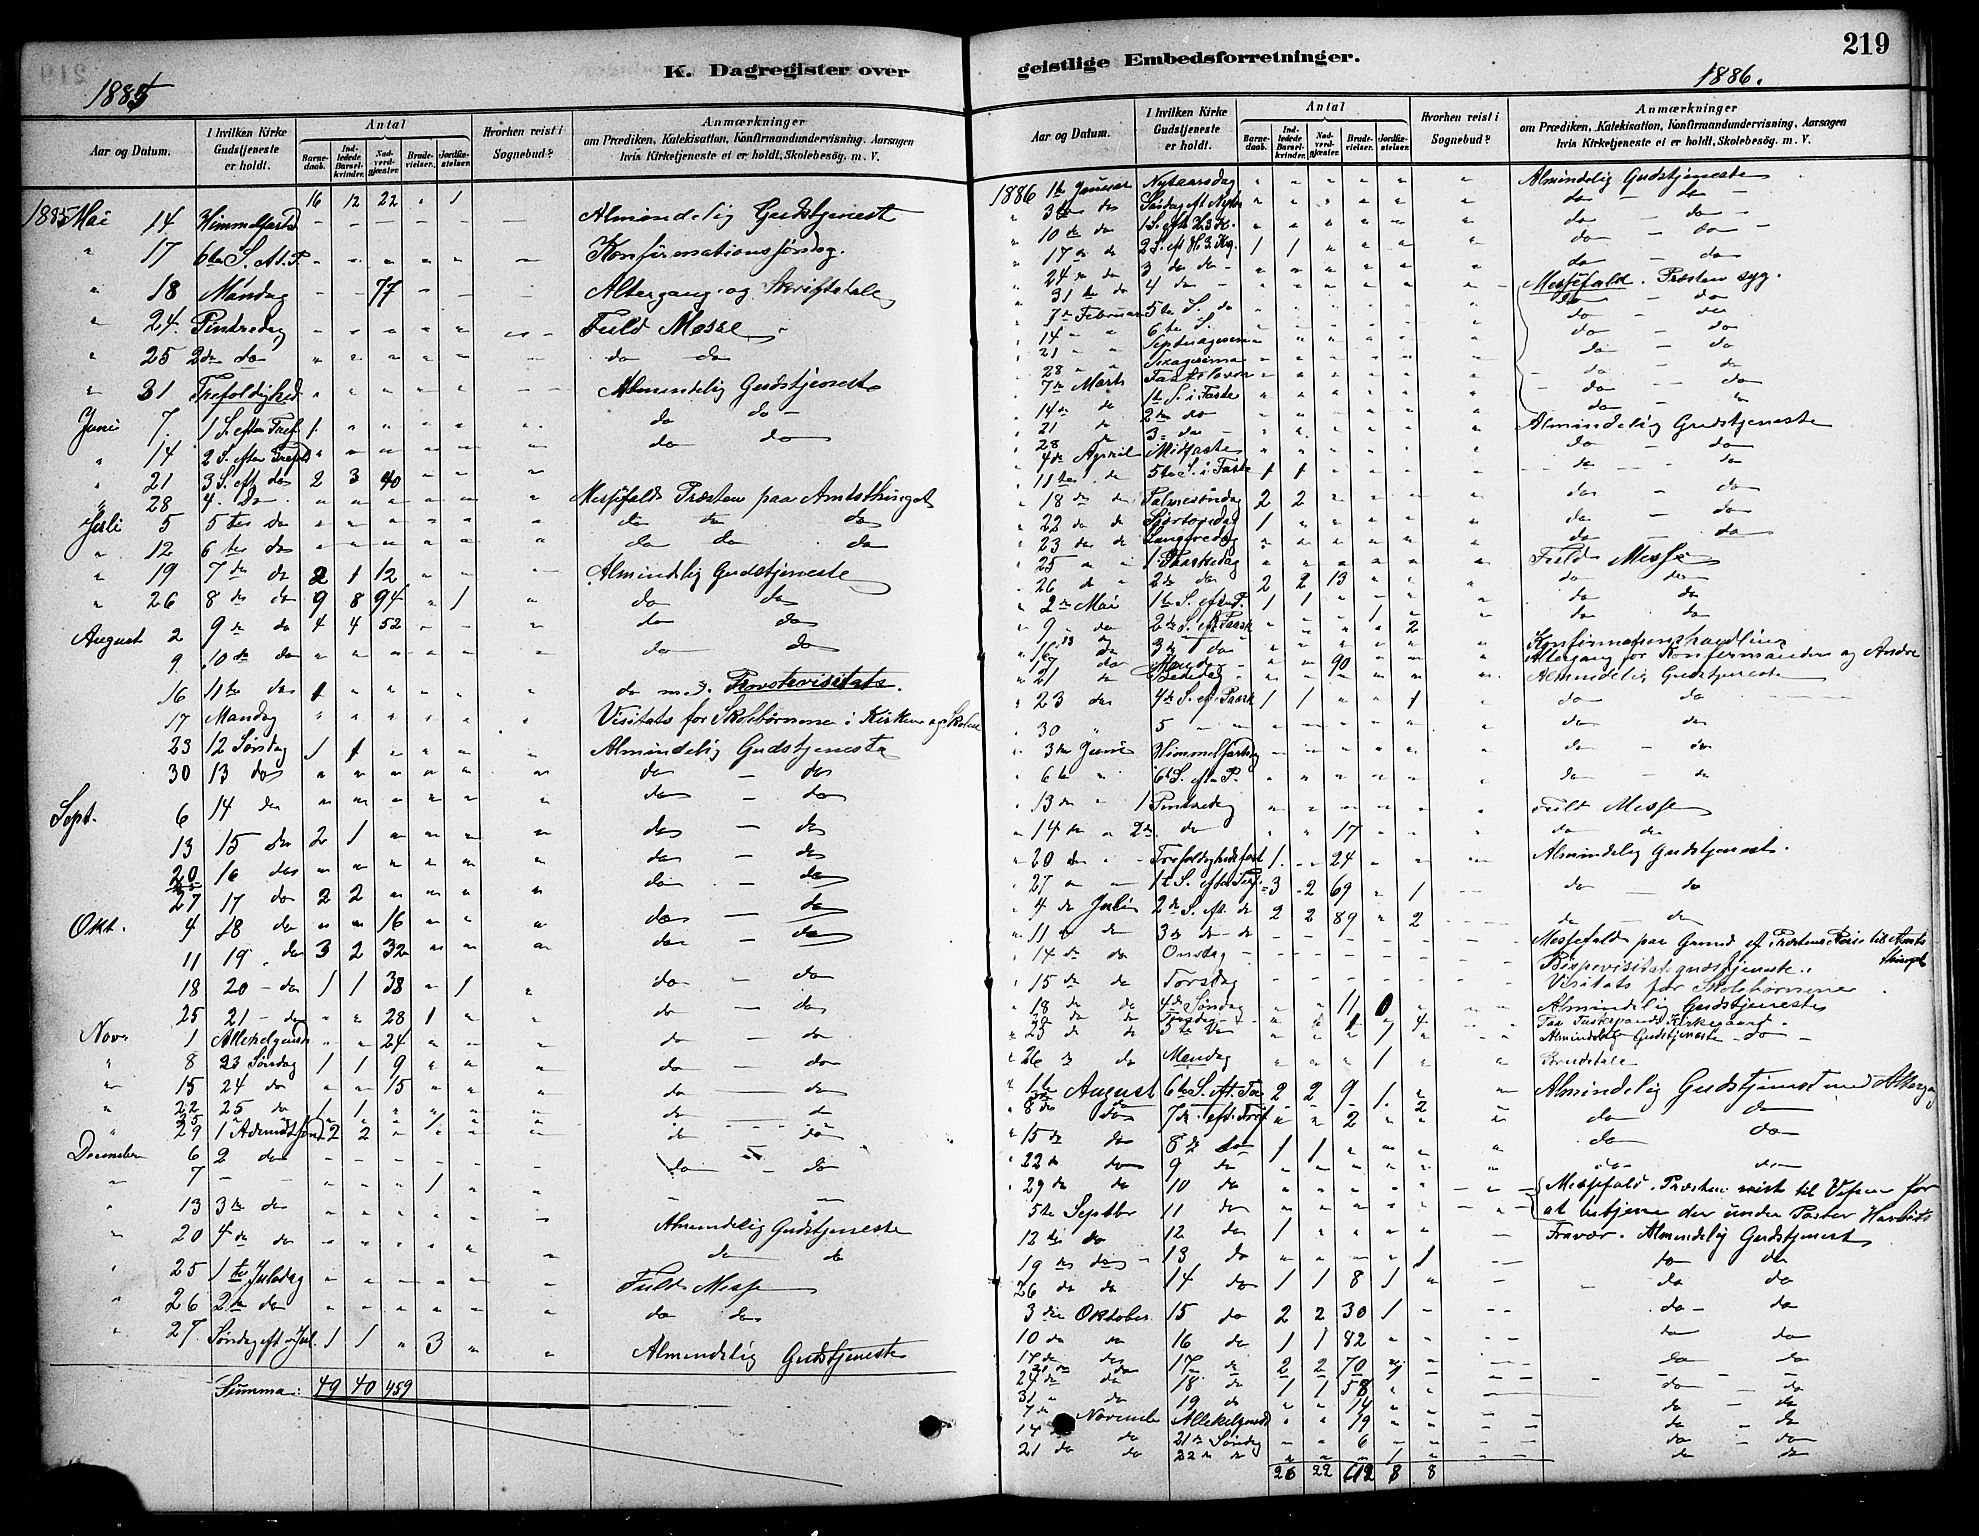 219
K. Dagregister over geistlige Embedsforretninger.
1885
Aar og Datum.
I hvilken Kirke Gudstjeneste er holdt.
Antal
Barnedaab.
Indledede Barselkvinder.
Nadverdgjæster.
Brudevielser.
Jordfæstelser.
Hvorhen reist i Sognebud?
Anmærkninger
om Prædiken, Katekisation, Konfirmandundervisning, Aarsagen
hvis Kirketjeneste ei er holdt, Skolebesög, m. V.
16 12 22 " 1
1885 Mai 14 Himmelfartsd. Almindelig Gudstjeneste
" 17 6te S. Konfirmationssøndag.
" 18 Mandag 77 Altergang og Skriftetale
" 24 Pintsedag Fuld Messe
" 25 2den do do do
" 31 Trefoldighed Almindelig Gudstjeneste
Juni 7 1 S. efter Tref. 1 do do
" 14 2 S. efter Trefold. do do
" 21 3 S. eft do 2 3 40
" 28 4. do Messefald Præsten paa Amtsthinget
Juli 5 5te do do do do
" 12 6te do do do do
" 19 7de do 2 1 12 Almindelig Gudstjeneste
" 26 8de do 9 8 94 " 1 do do
August 2 9de do 4 4 52 do do
9 10de do do do
16 11te do 1 do med Provstevisitats.
17 Mandag Visitats for Skolebørnene i Kirken og Skolen
23 12 Søndag 1 1 Almindelig Gudstjeneste
30 13 do do — do
Sept. 6 14 do do — do
13 15 do 2 1 do — do
20 16 do do — do
27 17 do 2 2 do — do
Okt. 4 18 do " " 16 do — do
11 19 do 3 2 32 do — do
18 20 - do 1 1 38 " 1 do — do
25 21 - do " " 28 1 do — do
Novr 1 Allehelgensd. " " 24 do — do
" 8 23 Søndag 1 1 9 do — do
" 15 24 do " " 15 do — do
" 22 25 do 1 1 do — do
" 29 1 Adventssønd 2 2 do do
December 6 2 do do — do
7 1
13 3de do
20 4de do Almindelig Gudstjeneste
25 1te Juledag
26 2den do Fuld Messe
27 Søndag eft. Jul. 1 1 " 3 Almindelig Gudstjeneste
Summa: 49 40 459
1886.
Aar og Datum.
I hvilken Kirke Gudstjeneste er holdt.
Antal
Barnedaab.
Indledede Barselkvinder.
Nadvergjæster.
Brudevielser.
Jordfæstelser.
Hvorhen reist i Sognebud?
Anmærkninger
om Prædiken, Katekisation, Konfirmandundervisning, Aarsagen
hvis Kirketjeneste ei er holdt, Skolebesög, m. V.
1886 1te Januar Nytaarsdag Almindelig Gudstjeneste
" 3die do Søndag eft. Nytaar do — do
" 10de do 1 S. eft. H.3.K. do — do
" 17 " do 2 S. eft H.3.Kg. 1 1 do — do
24 " do 3 do do do — do
31te do 4 do Messefald. Præsten syg.
7de Februar 5te S. do do — do
14 " " 6te S. do — do
21 " " Septuagesima do — do
28 " " Sexagesima do — do
7de Marts Fastelavn do — do
14de do 1te S. i Faste do — do
21 do 2den do do
28 do 3 do Almindelig Gudstjeneste
4de April Midfaste do do
11te do 5te S. i Faste 1 1 do — do
18de do Palmesøndag 2 2 do — do
22 do do Skjærtorsdag 1 do — do
23 do do Langfredag do — do
25 " " 1 Paaskedag Fuld Messe
26 do " 2den do 2 2 13 do do
2den Mai 1te S. efter P. 1 1 do do
9 do 2den S. eft Paask. 2 do do
16 do 3de do Konfirmationshandling
17 do Mandag 90 Altergang for Konfirmander og Andre
21 do Bededag Almindelig Gudstjeneste
23 do 4de S. eft. Paask 1 1 " " 1 do do
30 " 5 do do
3die Juni Himmelfartsdag do — do
6te " 6te S. eft. P. do — do
13de " 1 Pintsedag Fuld Messe
14de " 2de do 17 do do
20 do " Trefoldighedsfest 1 " 24 Almindelig Gudstjeneste.
27 " " 1te S. efter Tref. 3 2 69 " 1 do — do
4de Juli 2de S. eft. do 2 2 89 " 2 do — do
11te do 3de do Messefald paa Grund af Præstens Reise til Amtsthinget
14de do Onsdag Bispevisitatsgudstjeneste.
15de do Torsdag Visitats for Skolebørnene
18de do 4de Søndag 11 0 Almindelig Gudstjeneste
25 do do 5te Almindelig Gudstjeneste - do -
26 " do Mandag 1 Brudetale
1te August 6te S. eft. Tre 2 2 9 1 Almindelig Gudstjeneste med Altergang
8de do 7de eft. Tref 2 do do
15de do 8de do 1 1 do do
22de do 9 do do do
29de do 10 do Messefald. Præsten reist til Vefsen for
5te Septbr 11 do at betjene der under Pastor
12te do 12 do 1 Fravær. Almindelig Gudstjeneste
19de do 13 do 1 do do
26 do do 14 do 1 1 8 1 do do
3die Oktober 15 do 2 2 30 1 do do
10de do 16 do 1 1 82 do do
17de do 17 do 2 2 70 do do
24de do 18 do 1 1 58 do do
31 " do 19 do 14 do do
7de November Allehelgensd 19 do — do
14 do 21de Søndag 6 do — do
21 do do 22de do 1 do do
26 22 612 8 8